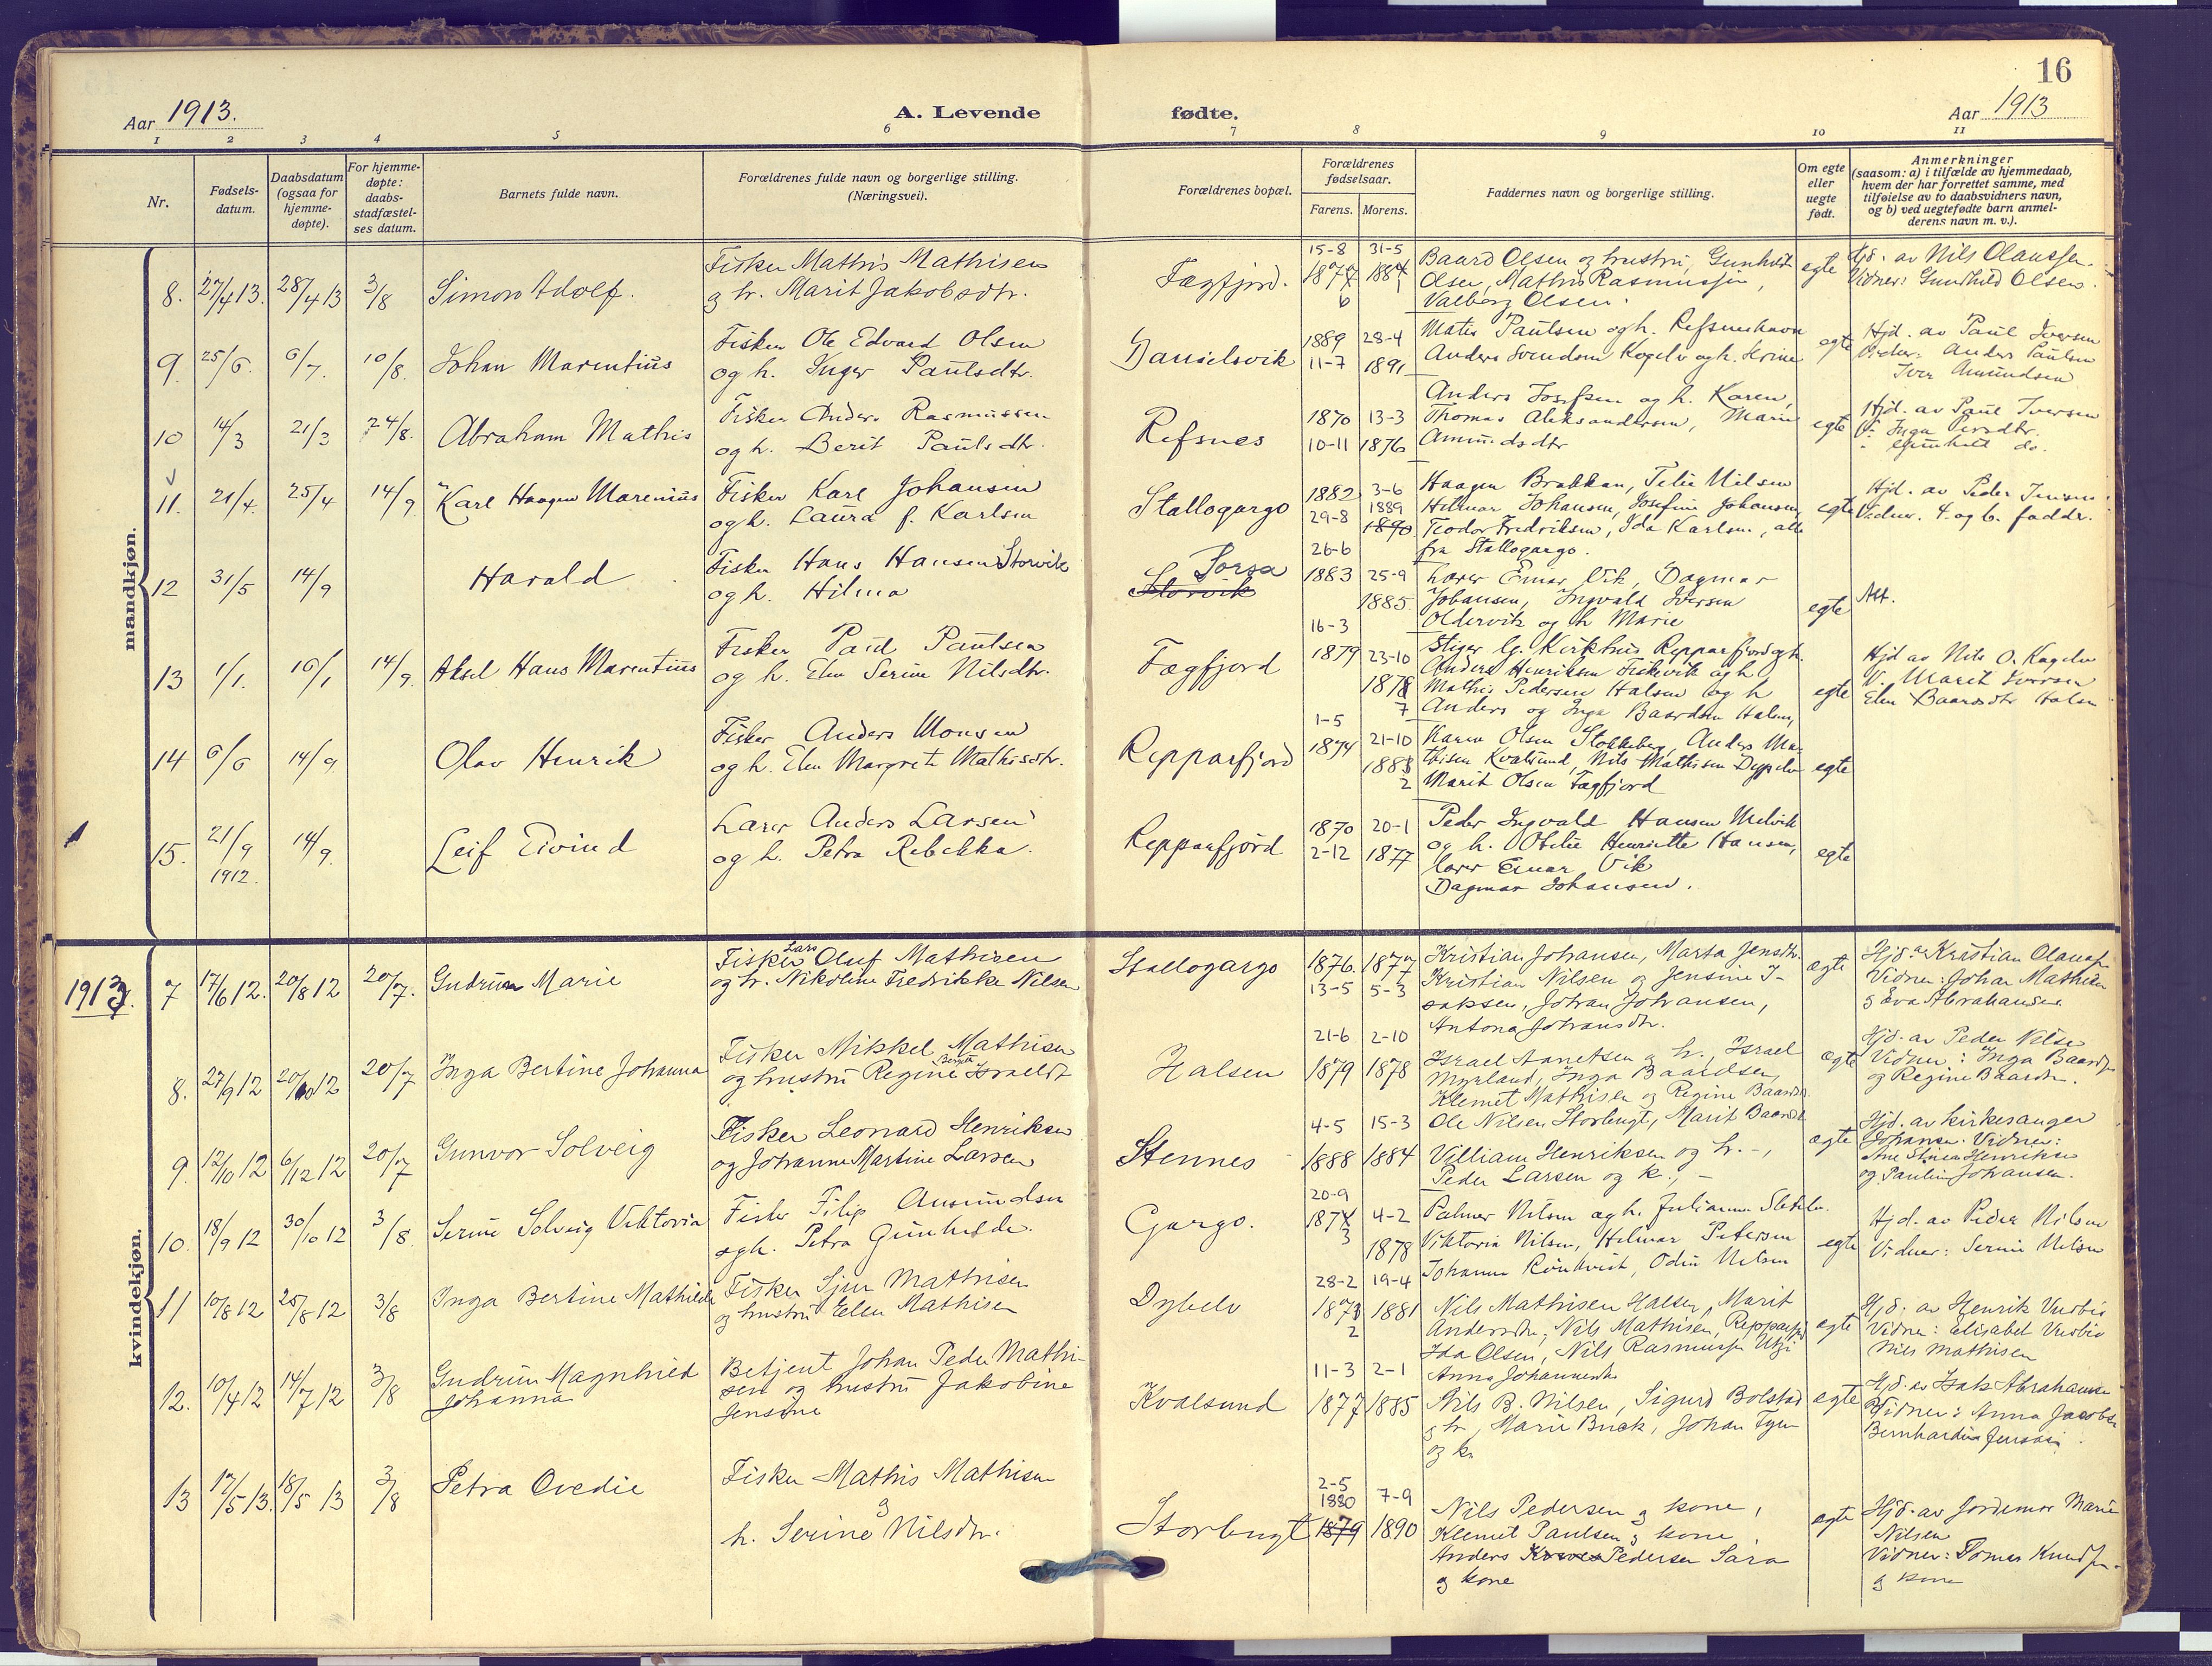 16
Aar 1913.
A. Levende fødte.
Aar 1913
1 2 3 4 5 6 7 8 9 10 11
Nr.
Fødsels-
datum.
Daabsdatum
(ogsaa for
hjemme-
døpte).
For hjemme-
døpte:
daabs-
stadfæstel-
ses datum.
Barnets fulde navn.
Forældrenes fulde navn og borgerlige stilling.
(Næringsvei).
Forældrenes bopæl.
Forældrenes
fødselsaar.
Farens. Morens.
Faddernes navn og borgerlige stilling.
Om egte
eller
uegte
født.
Anmerkninger
(saasom: a) i tilfælde av hjemmedaab,
hvem der har forrettet samme, med
tilføielse av to daabsvidners navn,
og b) ved uegtefødte barn anmel-
derens navn m. v.).
mandkjøn.
8. 27/4 13. 28/4 13 3/8 Simon Adolf.
Fisker Mathis Mathisen
og h. Marit Jakobsdtr.
Fægfjord.
15-8 31-5
1877 1884
6 1
Baard Olsen og hustru, Gunhild
Olsen, Mathis Rasmussen,
Valborg Olsen.
egte
Hjd. av Nils Olaussen.
Vidner: Gunhild Olsen.
9. 25/6. 6/7. 10/8. Johan Marentius
Fisker Ole Edvard Olsen
og h. Inger Paulsdtr.
Danielsvik
1889 28-4
11-7 1891
Mater Paulsen og h. Refsneshavn
Anders Svendsen Kogelv og h. Serine
egte
Hjd. av Paul Iversen
Vidner: Anders Paulsen
Iver Amundsen
10 14/3 21/3 24/8. Abraham Mathis
Fisker Anders Rasmussen
og h. Berit Paulsdtr.
Refsnes
1870 13-3
10-11 1876
Anders Josefsen og h. Karen,
Thomas Aleksandersen, Marie
Amundsdtr
egte
Hjd. av Paul Iversen
V. Inga Iversdtr.
" Gunhild do.
11. 21/4. 25/4 14/9 Karl Haagen Marenius
Fisker Karl Johansen
og h. Laura f. Karlsen
Stallogargo
1882 3-6
29-8 1889
1890
Haagen Brakkan, Telie Nilsen
Hilmar Johansen, Josefine Johansen,
Teodor Fredriksen, Ida Karlsen, alle
fra Stallogargo.
egte
Hjd. av Peder Jensen
Vidner. 4. og 6. fadder.
12 31/5 14/9 Harald
Fisker Hans Hansen Storvik
og h. Hilma
Sørsa
Storvik
26-6
1883 25-9
1885
Lærer Einar Vik, Dagmar
Johansen, Ingvald Iversen
Oldervik og h Marie
egte
Att.
13 1/1. 16/1 14/9. Aksel Hans Marentius
Fisker Paul Paulsen
og h. Elen Serine Nilsdtr.
Fægfjord
16-3
1879 23-10
1878
7
Stiger lg. Kirkhus Repparfjord og h.
Anders Henriksen Fiskevik og h
Mathis Pedersen Halsen og h
Anders og Inga Baardsen Halsen,
egte
Hjd av Nils O. Kogelv
V. Marit Iversen
Elen Baardsdtr Halsen
14 6/6 14/9. Olav Henrik
Fisker Anders Monsen
og h. Elen Margrete Mathisdtr.
Repparfjord
1-5
1874 21-10
1883
2
Karen Olsen Stokkeberg, Anders Ma-
thisen Kvalsund, Nils Mathisen Dypelv
Marit Olsen Fægfjord
egte
15. 21/9 1912. 14/9. Leif Eivind
Lærer Anders Larsen
og h. Petra Rebekka.
Repparfjord
1870 20-1
2-12 1877
Peder Ingvald Hansen Melvik
og h. Otelie Henriette Hansen,
lærer Einar Vik
Dagmar Johansen.
egte
1913. kvindekjøn.
7 17/6 12. 20/8 12 20/7. Gudrun Marie
Fisker Lars Oluf Mathisen
og h. Nikoline Fredrikke Nilsen
Stallogargo
1876. 1877
13-5 5-3
Kristian Johansen, Marta Jensdtr.
Kristian Nilsen og Jensine I-
saksen, Johan Johansen,
Antona Johansdtr.
egte
Hjd. av Kristian Olaussen
Vidner: Johan Mathisen
og Eva Abrahamsen
8. 27/9 12 20/10 12 20/7 Inga Bertine Johanna
Fisker Mikkel Mathisen
og hustru Regine Bergitte Israelsdt
Halsen
21-6 2-10
1879 1878
Israel Annetsen og h., Israel
Myrland, Inga Baardsen,
Klemet Mathisen og Regine Baardsd.
Ole Nilsen Storbugt, Marit Baardsd
egte
Hjd. av Peder Nilsen
Vidner: Inga Baardsen
og Regine Baardsen.
9. 12/10 12 6/12 12 20/7 Gunvor Solveig
Fisker Leonard Henriksen
og Johanne Martine Larsen
Stennes
4-5 15-3
1888 1884
Villiam Henriksen og h. -,
Peder Larsen og k., -
egte
Hjd. av kirkesanger
Johansen. Vidner:
Ane Henriksen
og Pauline Johansen.
10. 18/9 12 30/10 12 3/8. Serine Solveig Viktoria
Fisker Filip Amundsen
og h. Petra Gunhilde.
Gargo.
20-9
1874 4-2
3 1878
Palmer Nilsen og h. Julianne
Viktoria Nilsen, Helmar Petersen
Johanne Rundkvist, Odin Nilsen
egte
Hjd. av Peder Nilsen
Vidner: Serine Nilsen
11 10/8 12 25/8 12 3/8 Inga Bertine Mathilde
Fisker Sjur Mathisen
og hustru Ellen Mathisen
Dybelv
28-2 19-4
1873 1881
2
Nils Mathisen Halsen, Marit
Andersdtr, Nils Mathisen, Repparfjord
Ida Olsen, Nils Rasmussen Utzi
Anna Johannesdtr
egte
Hjd. av Henrik
Vidner: Elisabet
Nils Mathisen
12. 10/4 12 14/7 12 3/8 Gudrun Magnhild
Johanna
Betjent Johan Peder Mathi-
sen og hustru Jakobine
Jensine
Kvalsund
11-3 2-1
1877 1885
Nils B. Nilsen, Sigurd Bolstad
og h, Marie Buck, Johan
og k.
egte
Hjd. av Isak Abrahamsen
Vidner: Anna Jacobsen
Bernhardin Jensen.
13 17/5 13. 18/5 13 3/8 Petra Ovedie
Fisker Mathis Mathisen
og
h. Serine Nilsdtr.
Storbugt
2-5
1880 7-9
1879 1890
Nils Pedersen og kone,
Klemet Paulsen og kone
Anders Pedersen Sara
og kone
egte
Hjd. av Jordemor Marie
Nilsen
Vidner: Tomas Knudsen.
og kone